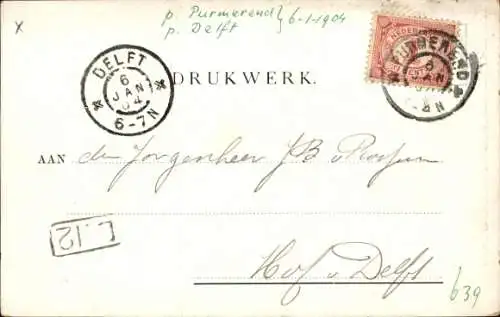 x
p. Purmerend } 6-1-1904
p. Delft
NEDERLAND
DELFT
6
JAN
04
6-7N
PURMEREND
6
JAN
DRUKWERK.
AAN den
JB v
L.12
Hof v Delft
639